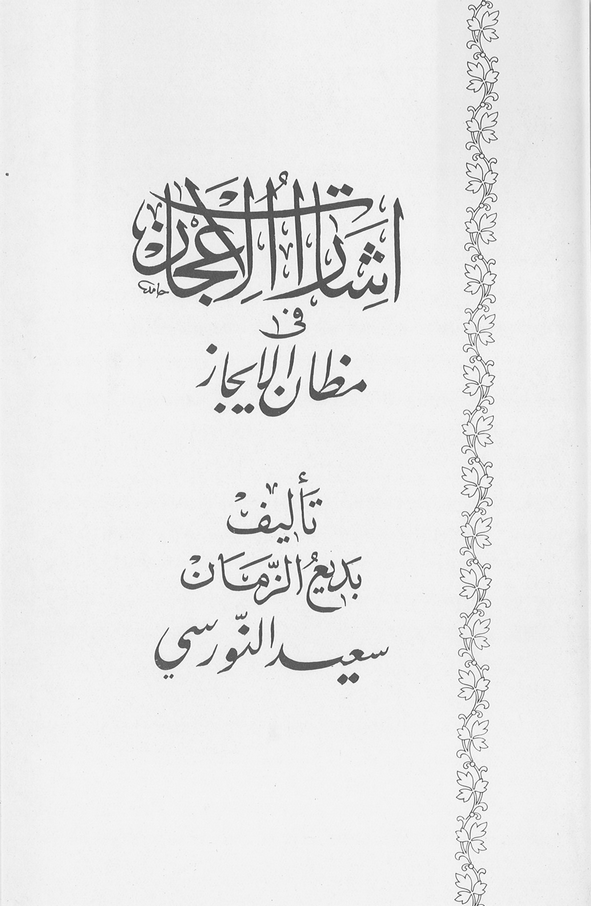 اشارات الإعجاز
حامد
فى
مظان الايجاز
تأليف
بديع الزمان
سعيد النورسي